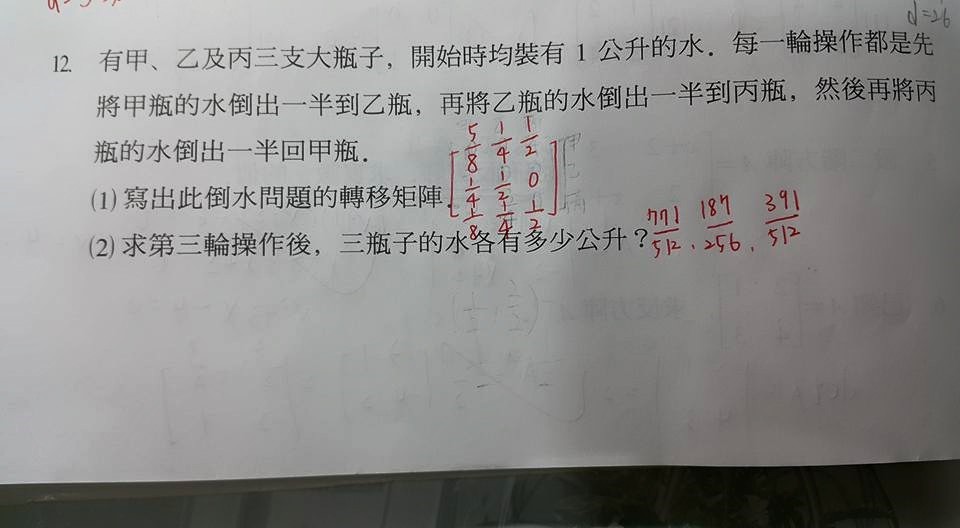 d=26
12. 有甲、乙及丙三支大瓶子，開始時均裝有 1 公升的水．每一輪操作都是先
將甲瓶的水倒出一半到乙瓶，再將乙瓶的水倒出一半到丙瓶，然後再將丙
瓶的水倒出一半回甲瓶．
(1) 寫出此倒水問題的轉移矩陣． [5/8 1/4 1/2
1/4 1/2 0
1/8 1/4 1/2]
(2) 求第三輪操作後，三瓶子的水各有多少公升？ 771/512 . 187/256 . 391/512